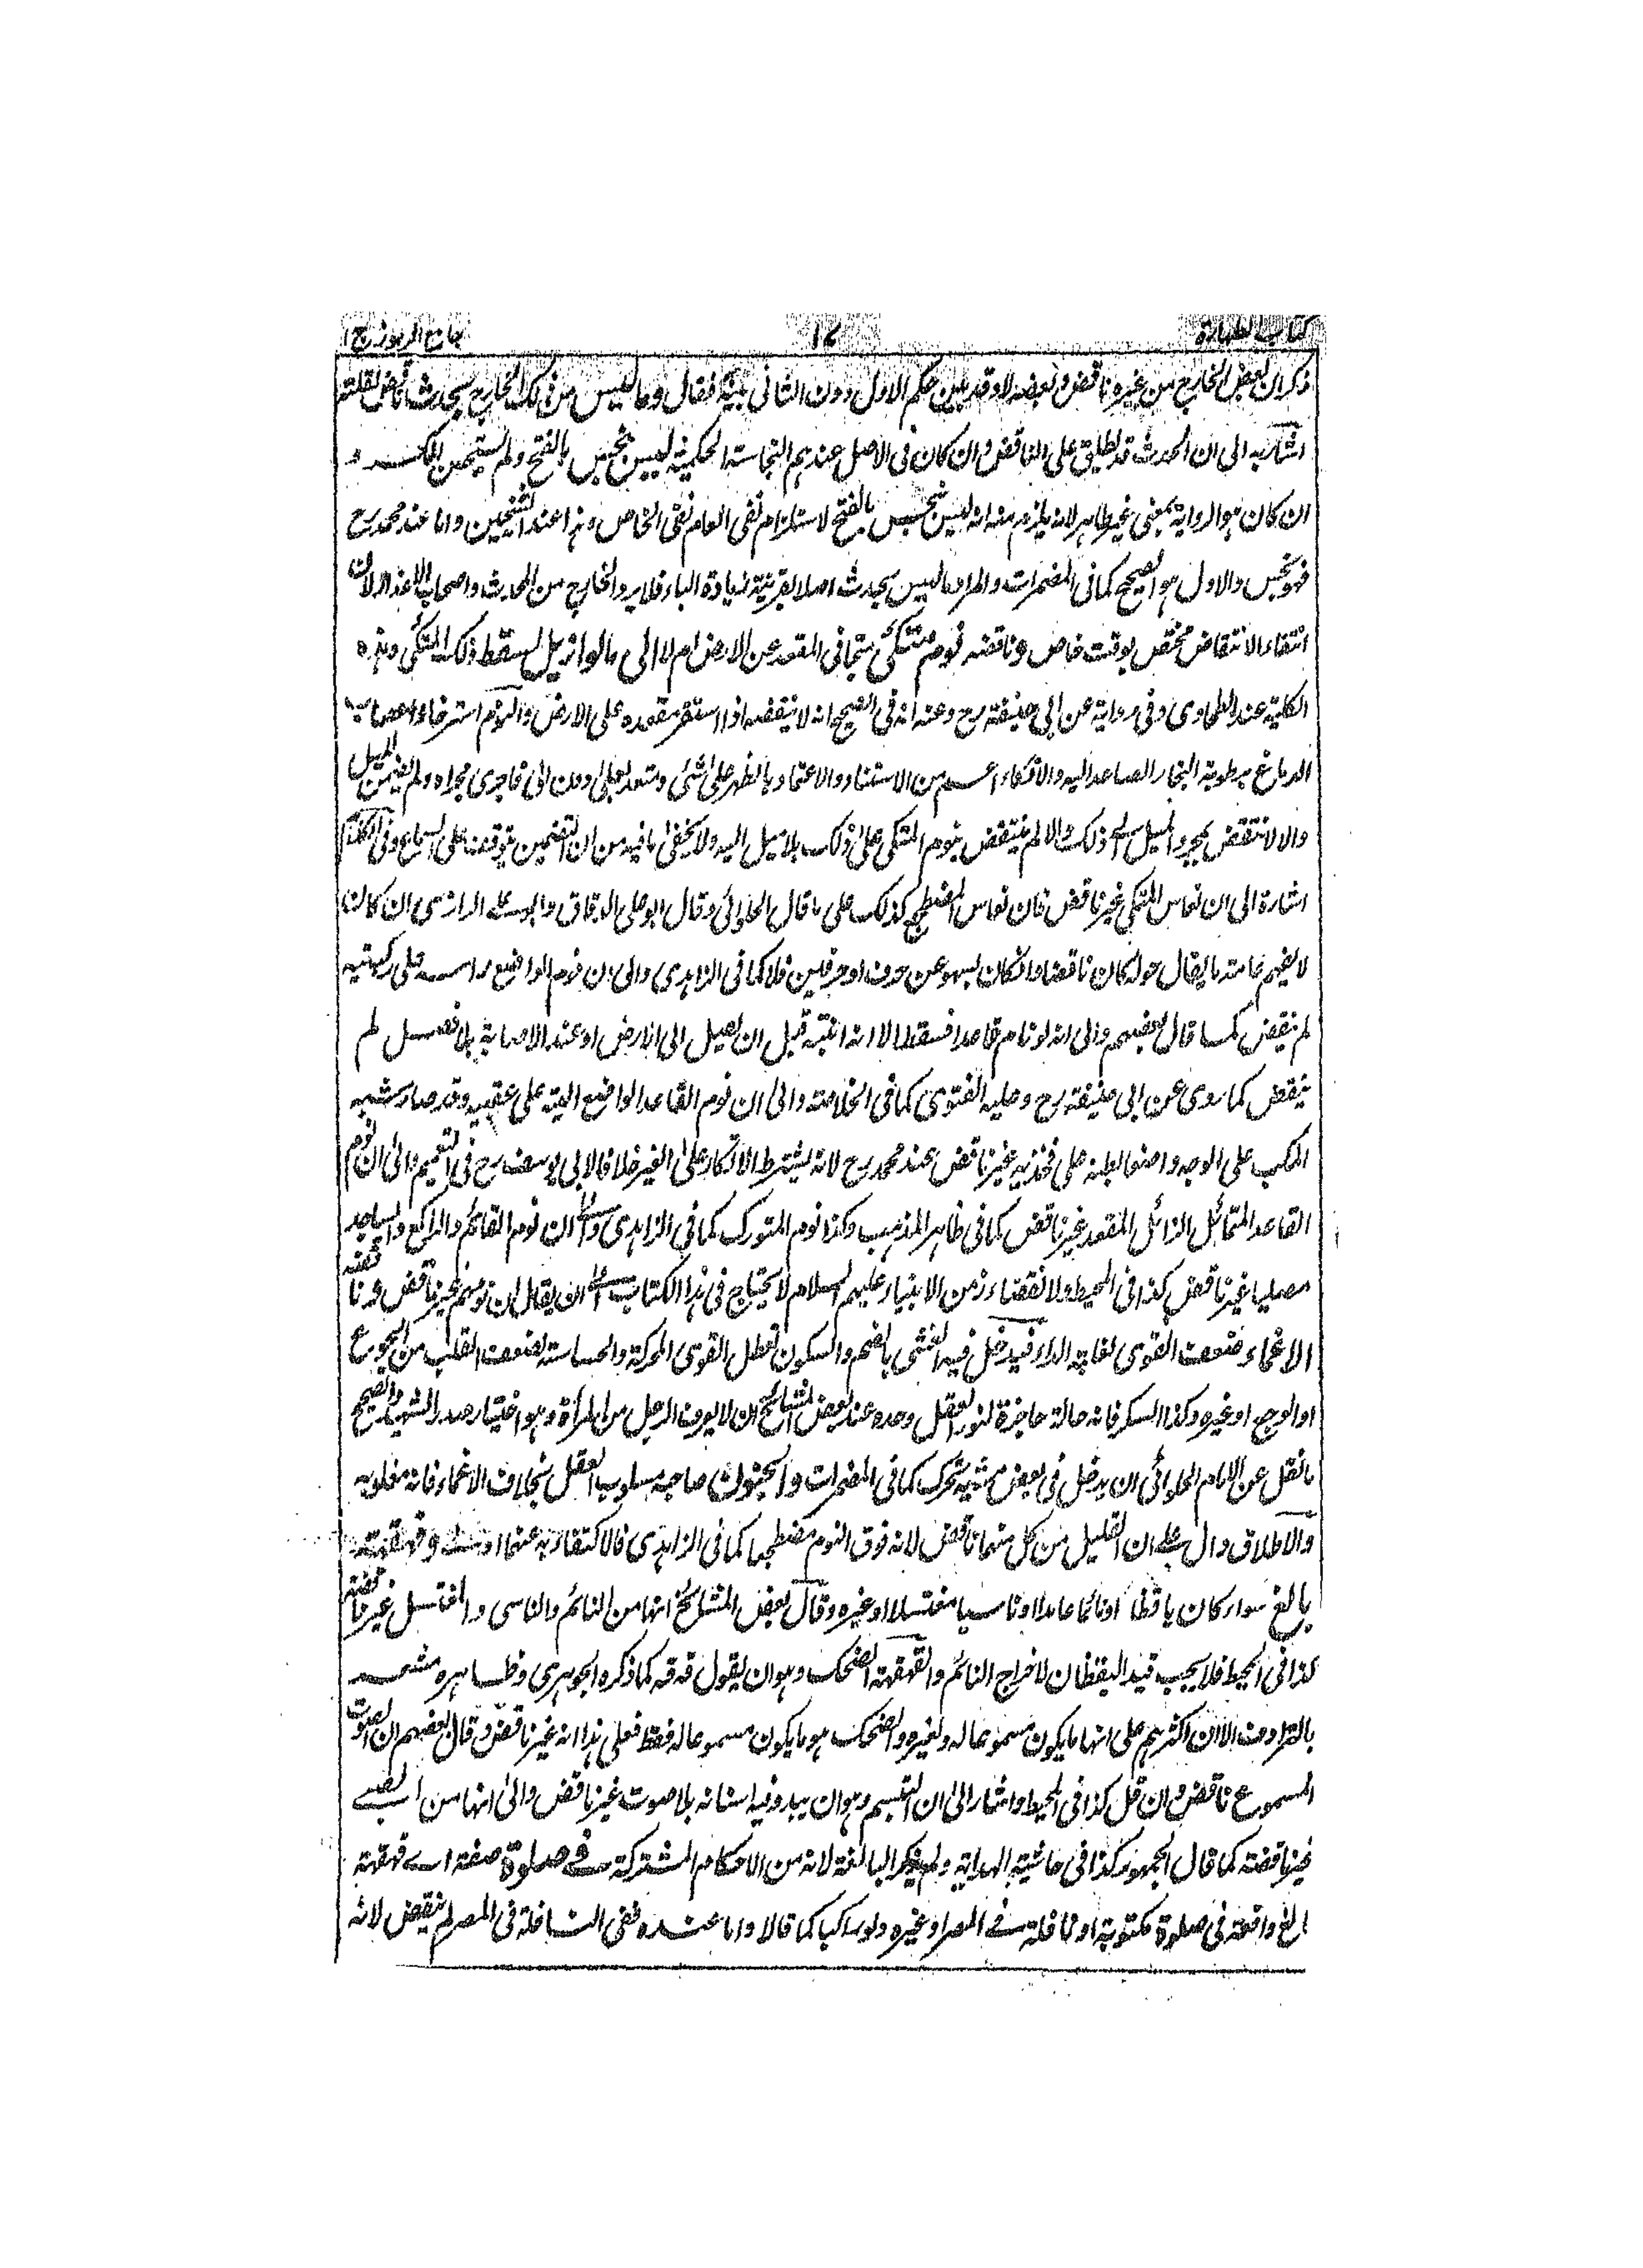 كتاب الطهارة ١٧ جامع الرموز ج ١
ذكر ان بعض الخارج من غيره ناقض وبعضه لا وقد بين حكم الاول دون الثاني بينه فقال وما ليس من ذلك الخارج بحدث ناقض لقلته
اشار به الى ان الحدث قد يطلق على الناقض وان كان فى الاصل عندهم النجاسة الحكمية ليس بنجس بالفتح ولم يستحسن الكسر و
ان كان هو الرواية بمعنى غير طاهر لانه يلزم منه انه ليس بنجس بالفتح لاستلزام نفى العام نفى الخاص وهذا عند الشيخين واما عند محمد رح
فهو نجس والاول هو الصحيح كما فى المضمرات والمراد ما ليس بحدث اصلا بقرينة زيادة الباء فلا يرد الخارج من المحدث واصحاب الاعذار لان
انتفاء الانتقاض مختص بوقت خاص وناقضه نوم متكئ متجافى المقعد عن الارض ام لا الى ما لو ازيل لسقط ذلك المتكئ وهذه
الكلية عند الطحاوى وفى رواية عن ابى حنيفة رح وعنه انه فى الصحيح انه لا ينقضه اذا استقر مقعده على الارض والنوم استرخاء اعصاب
الدماغ برطوبة البخار الصاعد اليه والاتكاء اعم من الاستناد والاعتماد بالظهر على شئ وتعد بعلى دون الى فاجرى مجراه ولم يضمن الميل
والا لانتقض بمجرد الميل الى ذلك والا لم ينتقض بنوم المتكئ على ذلك بلا ميل اليه ولا يخفى ما فيه من ان التضمين يتوقف على السماع وفى الكلام
اشارة الى ان نعاس المتكئ غير ناقض فان نعاس المضطجع كذلك على ما قال الحلوانى وقال ابو على الدقاق وابو على الرازى ان كان
لا يفهم عامة ما يقال حوله كان ناقضا وان كان يسهو عن حرف او حرفين فلا كما فى الزاهدى والى ان نوم الواضع راسه على ركبتيه
لم ينقض كما قال بعضهم والى انه لو نام قاعدا فسقط الا انه انتبه قبل ان يصل الى الارض او عند الاصابة بلا فصل لم
ينقض كما روى عن ابى حنيفة رح وعليه الفتوى كما فى الخلاصة والى ان نوم القاعد الواضع اليتيه على عقبيه وقد صار شبه
المكب على الوجه واضعا بطنه على فخذيه غير ناقض عند محمد رح لانه يشترط الاتكاء على الغير خلافا لابى يوسف رح فى التعميم والى ان نوم
القاعد المتمائل الزائل المقعد غير ناقض كما فى ظاهر المذهب وكذا نوم المتورك كما فى الزاهدى والى ان نوم القائم والراكع والساجد
مصليا غير ناقض كذا فى المحيط ولانقضاء زمن الانبياء عليهم السلام لا يحتاج فى هذا الكتاب الى ان يقال ان نومهم غير ناقض وناقضه
الاغماء ضعف القوى لغلبة الداء فيدخل فيه الغشى بالضم والسكون تعطل القوى المحركة والحساسة لضعف القلب من الجوع
او الوجع او غيره وكذا السكر فانه حالة حاجزة لنور العقل وحده عند بعض المشائخ ان لا يعرف الرجل من المرأة وهو اختيار صدر الشهيد والصحيح
ما نقل عن الامام الحلوائى ان يدخل فى بعض مشيته تحرك كما فى المضمرات والجنون صاحبه مسلوب العقل بخلاف الاغماء فانه مغلوبه
والاطلاق دال على ان القليل من كل منهما ناقض لانه فوق النوم مضطجعا كما فى الزاهدى فالاكتفاء به عنهما اولى وقهقهة
بالغ سواء كان ياقظا او نائما عامدا او ناسيا مغتسلا او غيره وقال بعض المشائخ انها من النائم والناسى والمغتسل غير ناقضة
كذا فى المحيط فلا يجب قيد اليقظان لاخراج النائم والقهقهة الضحك وهو ان يقول قه قه كما ذكره الجوهرى وظاهره مشعر
بالترادف الا ان اكثرهم على انها ما يكون مسموعا له ولغيره والضحك هو ما يكون مسموعا له فقط فعلى هذا انه غير ناقض وقال بعضهم ان الصوت
المسموع ناقض وان قل كذا فى المحيط واشار الى ان التبسم وهو ان يبدو فيه اسنانه بلا صوت غير ناقض والى انها من الصبى
غير ناقضة كما قال الجمهور كذا فى حاشية الهداية ولم يذكر البالغة لانه من الاحكام المشتركة فى صلوة صفة اى قهقهة
الغ واقعة فى صلوة مكتوبة او نافلة فى المصر او غيره ولو راكبا كما قالا واما عنده ففى النافلة فى المصر لم ينقض لانه